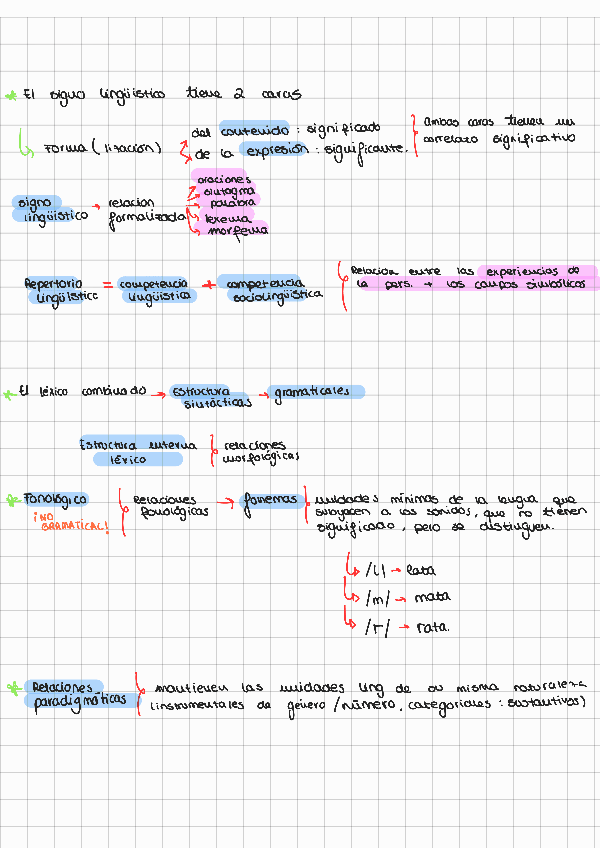 * El signo lingüístico tiene 2 caras
Forma (lización)
del contenido : significado
de la expresión : significante.
Ambas caras tienen un
correlato significativo
signo
lingüístico → relación
formalizada
oraciones
sintagma
palabra
lexema
morfema
Repertorio
lingüístico = competencia
lingüística + competencia
sociolingüística
Relación entre las experiencias de
la pers. + los campos simbólicos
* El léxico combinado → Estructura
sintácticas → gramaticales
Estructura interna
léxico
relaciones
morfológicas
* Fonológico
¡NO
GRAMATICAL!
Relaciones
fonológicas → fonemas
unidades mínimas de la lengua que
subyacen a los sonidos, que no tienen
significado, pero se distinguen.
/l/ → lata
/m/ → mata
/r/ → rata.
* Relaciones
paradigmáticas
mantienen las unidades ling de su misma naturaleza
(instrumentales de género/número, categoriales : sustantivos)